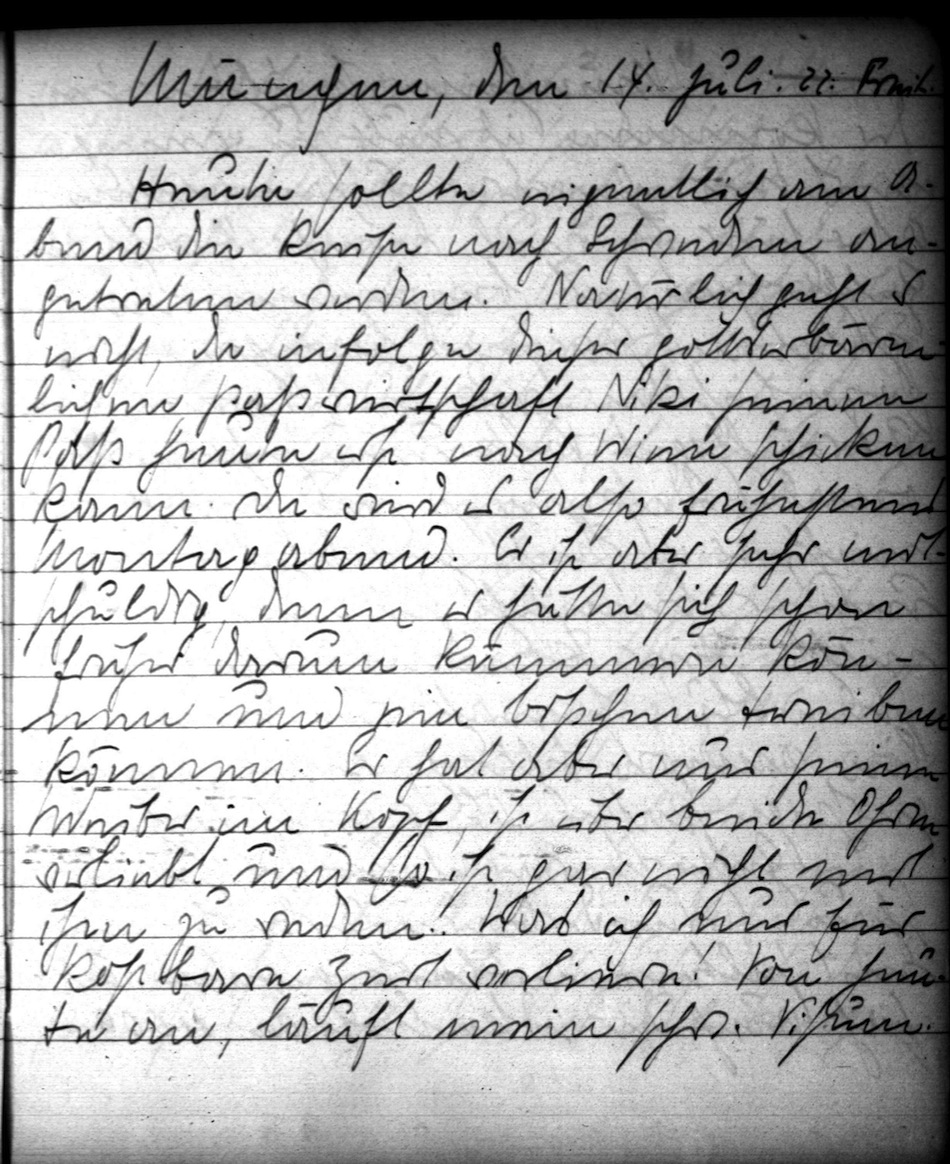 München, den 14. Juli. 22. Freit.
Heute sollte eigentlich am A-
bend die Reise nach Schweden an-
getreten werden. Natürlich geht es
nicht, da infolge dieser gotterbärm-
lichen Passwirtschaft Niki seinen
Pass heute erst nach Wien schicken
kann. Da wird es also frühestens
Montag abend. Er ist aber sehr mit-
schuldig, denn er hätte sich schon
früher darum kümmern kön-
nen und ein bischen treiben
können. Er hat aber nur seine
Weiber im Kopf, ist über beide Ohren
verliebt und so ist gar nicht mit
ihm zu reden! Was ich nur für
kostbare Zeit verliere! Von heu-
te an, läuft mein schw. Visum.